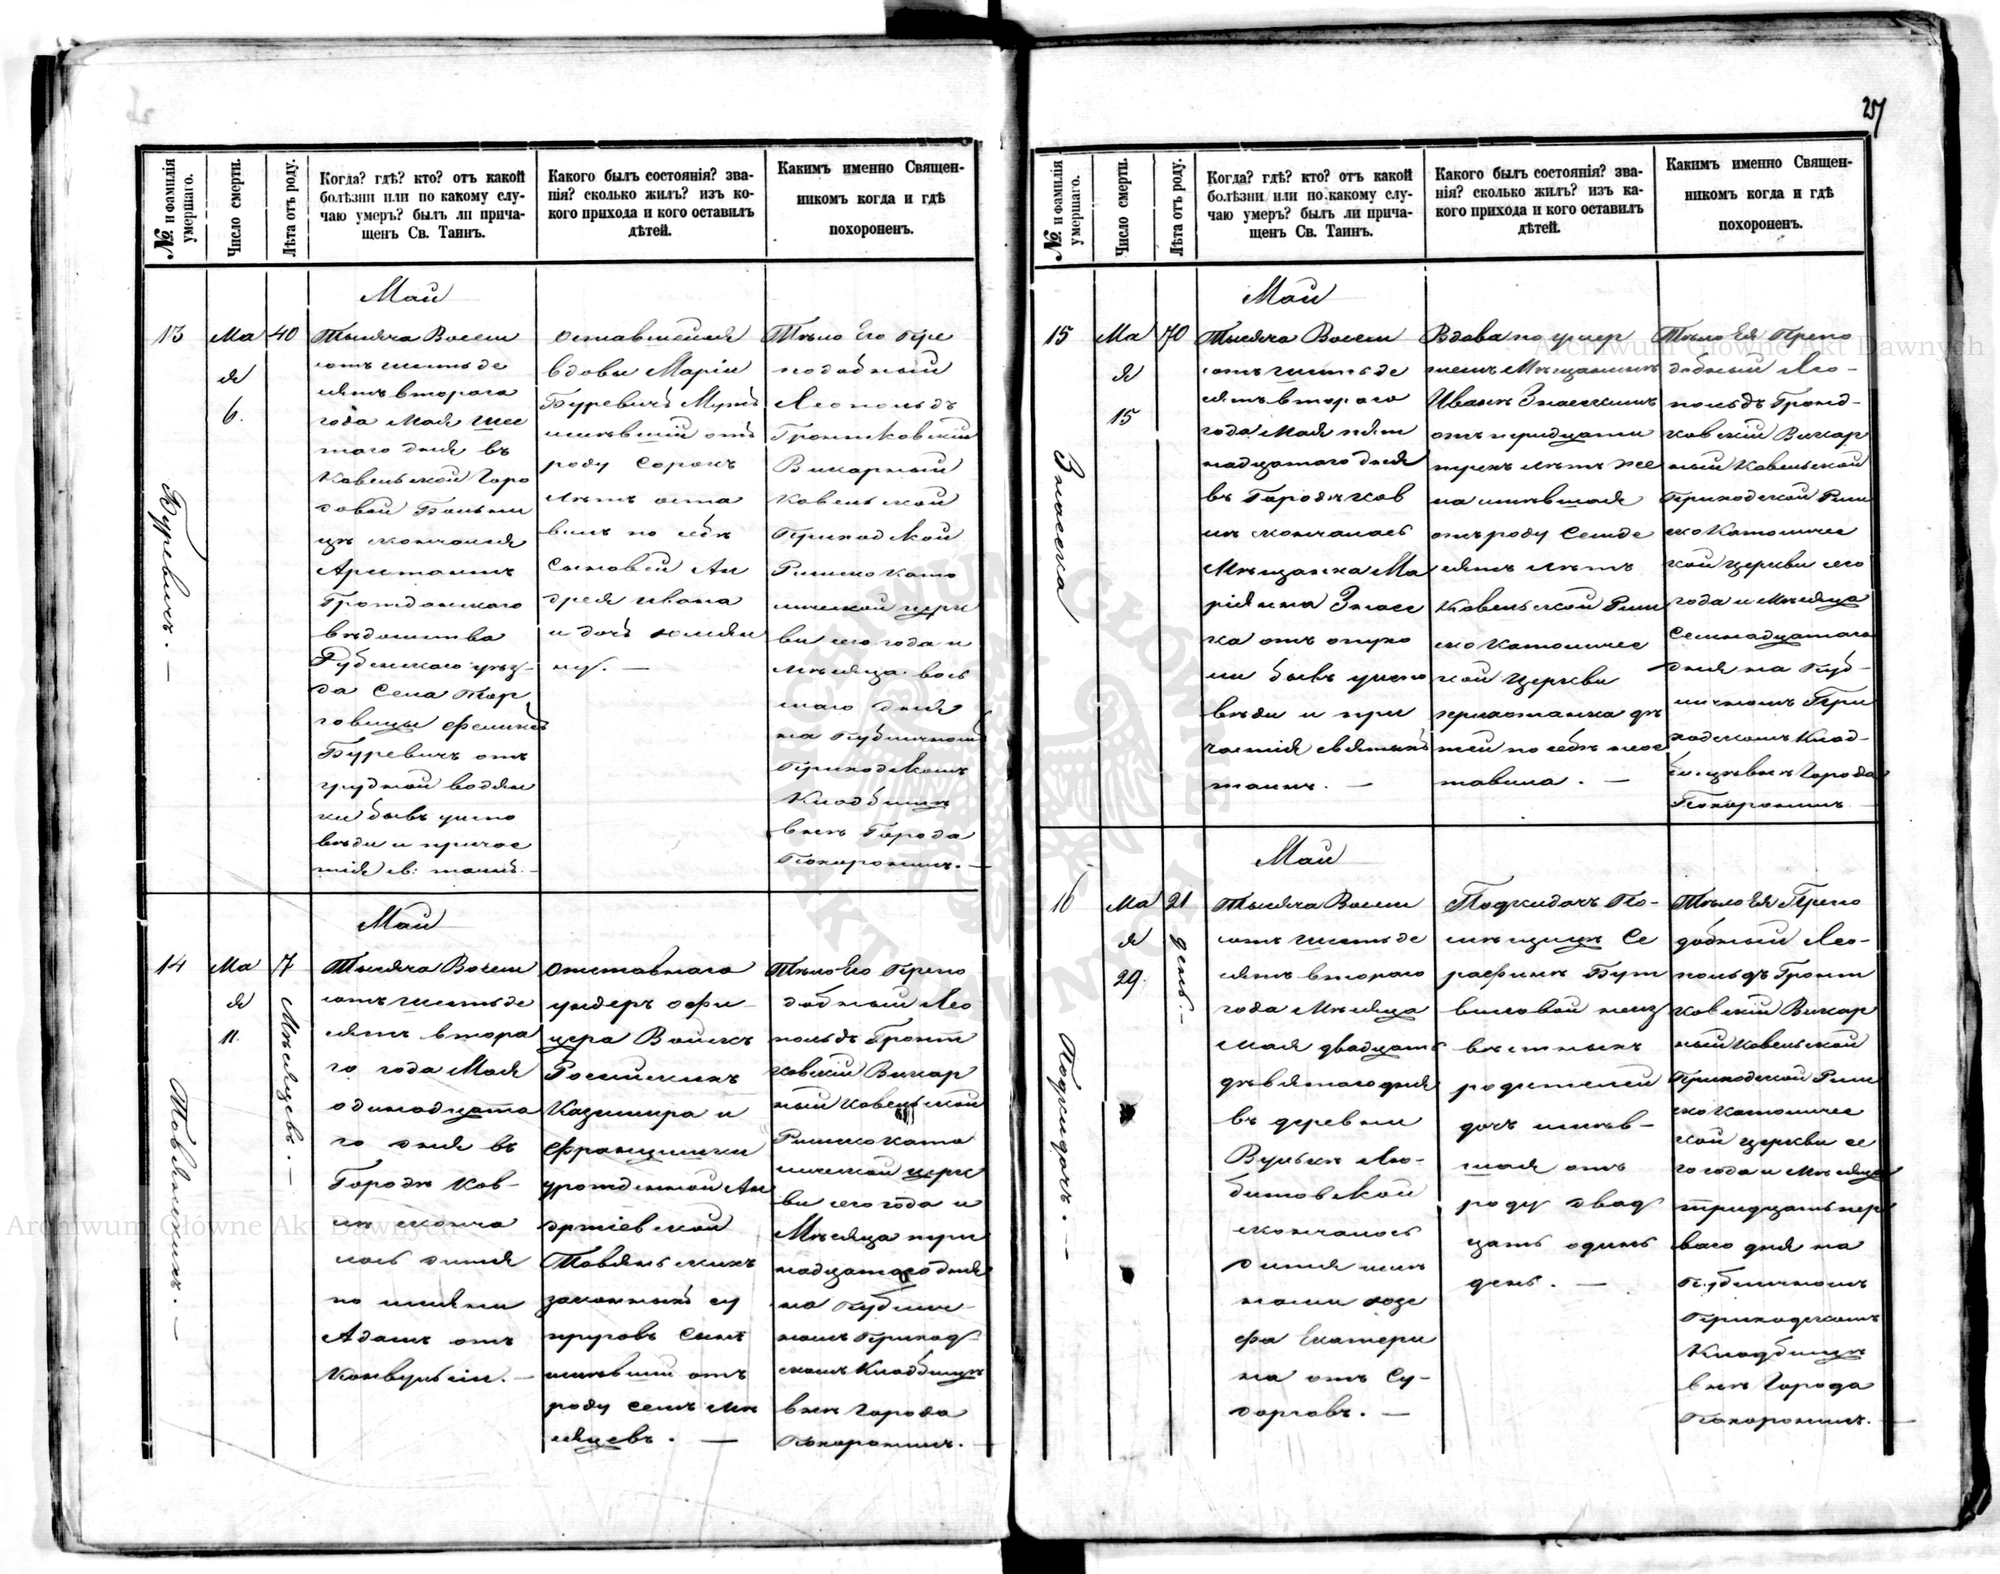 25
№. и фамилія умершаго.
Число смерти.
Лѣта отъ роду.
Когда? гдѣ? кто? отъ какой
болѣзни или по какому слу-
чаю умеръ? былъ ли прича-
щенъ Св. Таинъ.
Какого былъ состоянія? зва-
нія? сколько жилъ? изъ ко-
кого прихода и кого оставилъ
дѣтей.
Каким​ъ именно Священ-
никомъ когда и гдѣ
похороненъ.
Май
13
Мая
6.
40
Буревичъ. —
Тысяча Восем
сотъ шестьде
сятъ втораго
года Мая шес
таго дня въ
Ковельской Горо
довой Больни
цѣ скончался
Арестантъ
Гражданскаго
вѣдомства
Дубенскаго уѣз-
да Села Тор
говицы Феликсъ
Буревичъ отъ
грудной водян
ки бывъ испо
вѣди и причас
тія св: таинъ. —
оставшейся
вдовы Маріи
Буревичъ Мужъ
имѣвшій отъ
роду Сорокъ
лѣтъ оста
вилъ по себѣ
Сыновей Ан
дрея Ивана
и дочь Юлиян
ну. —
Тѣло Его Пре
подобный
Леопольдъ
Гронтковскій
Викарный
Ковельской
Приходской
Римско Като
лической церк
ви сего года и
мѣсяца вось
маго дня
на Публичномъ
Приходскомъ
Кладбищѣ
внѣ Города
Похоронилъ. —
Май
14
Мая
11.
7 Мѣсяцевъ. —
Товянскихъ. —
Тысяча Восем
сотъ шестьде
сятъ втора
го года Мая
одинадцата
го дня въ
Городѣ Ков-
лѣ сконча
лось дитя
по имени
Адамъ отъ
Конвульсіи. —
Отставнаго
ундеръ офи-
цера Войскъ
Россійскихъ
Казимира и
Францишки
урожденной Ан
држіевской
Товянскихъ
законныхъ су
пруговъ Сынъ
имѣвшій отъ
роду семь мѣ
сяцевъ. —
Тѣло Его Препо
добный Лео
польдъ Гронт
ковскій Викар
ный Ковельской
Римско Като
лической церк
ви сего года и
Мѣсяца три
надцатаго дня
на Публич-
номъ Приход
скомъ Кладбищѣ
внѣ Города
Похоронилъ. —
№. и фамилія умершаго.
Число смерти.
Лѣта отъ роду.
Когда? гдѣ? кто? отъ какой
болѣзни или по какому слу-
чаю умеръ? былъ ли прича-
щенъ Св. Таинъ.
Какого былъ состоянія? зва-
нія? сколько жилъ? изъ ка-
кого прихода и кого оставилъ
дѣтей.
Какимъ именно Священ-
никомъ когда и гдѣ
похороненъ.
Май
15
Мая
15
70
Знаеска
Тысяча Восем
сотъ шестьде
сятъ втораго
года Мая пят
надцатаго дня
въ Городѣ Ков
лѣ скончалась
Мѣщанка Ма
ріянна Знаес
ка отъ опухо
ли бывъ испо
вѣди и при
частія святыхъ
таинъ. —
Вдова по умер
шемъ Мѣщанинѣ
Иванѣ Знаескимъ
отъ тридцати
трехъ лѣтъ же
на имѣвшая
отъ роду Семьде
сятъ лѣтъ
Ковельской Рим
ско Католичес
кой Церкви
прихожанка дѣ
тей по себѣ неос
тавила. —
Тѣло Ея Препо
добный Лео-
польдъ Гронд-
ковскій Викар
ный Ковельской
Приходской Рим
ско Католичес
кой церкви сего
года и Мѣсяца
Семнадцатаго
дня на Пуб-
личномъ При
ходскомъ Клад-
бищѣ внѣ Города
Похоронилъ
Май
16
Мая
29.
21 день. —
Подкидачъ. —
Тысяча Восем
сотъ шестьде
сятъ втораго
года Мѣсяца
мая двадцать
дѣвятаго дня
въ деревни
Вульки Лю-
битовской
скончалось
дитя име
нами Юзе
фа Екатери
на отъ Су-
дорговъ. —
Подкидачъ По-
мѣщицѣ Се
рафинѣ Бут
виловой неиз
вѣстныхъ
родителей
дочь имѣв-
шая отъ
роду двад
цать одинъ
день. —
Тѣло Ея Препо
добный Лео-
польдъ Гронт
ковскій Викар
ный Ковельской
Приходской Рим
ско Католичес
кой церкви се
го года и Мѣсяца
тридцать пер
ваго дня на
Публичномъ
Приходскомъ
Кладбищѣ
внѣ Города
Похоронилъ. —
Archiwum Główne Akt Dawnych
Archiwum Główne Akt Dawnych
ARCHIWUM GŁÓWNE AKT DAWNYCH